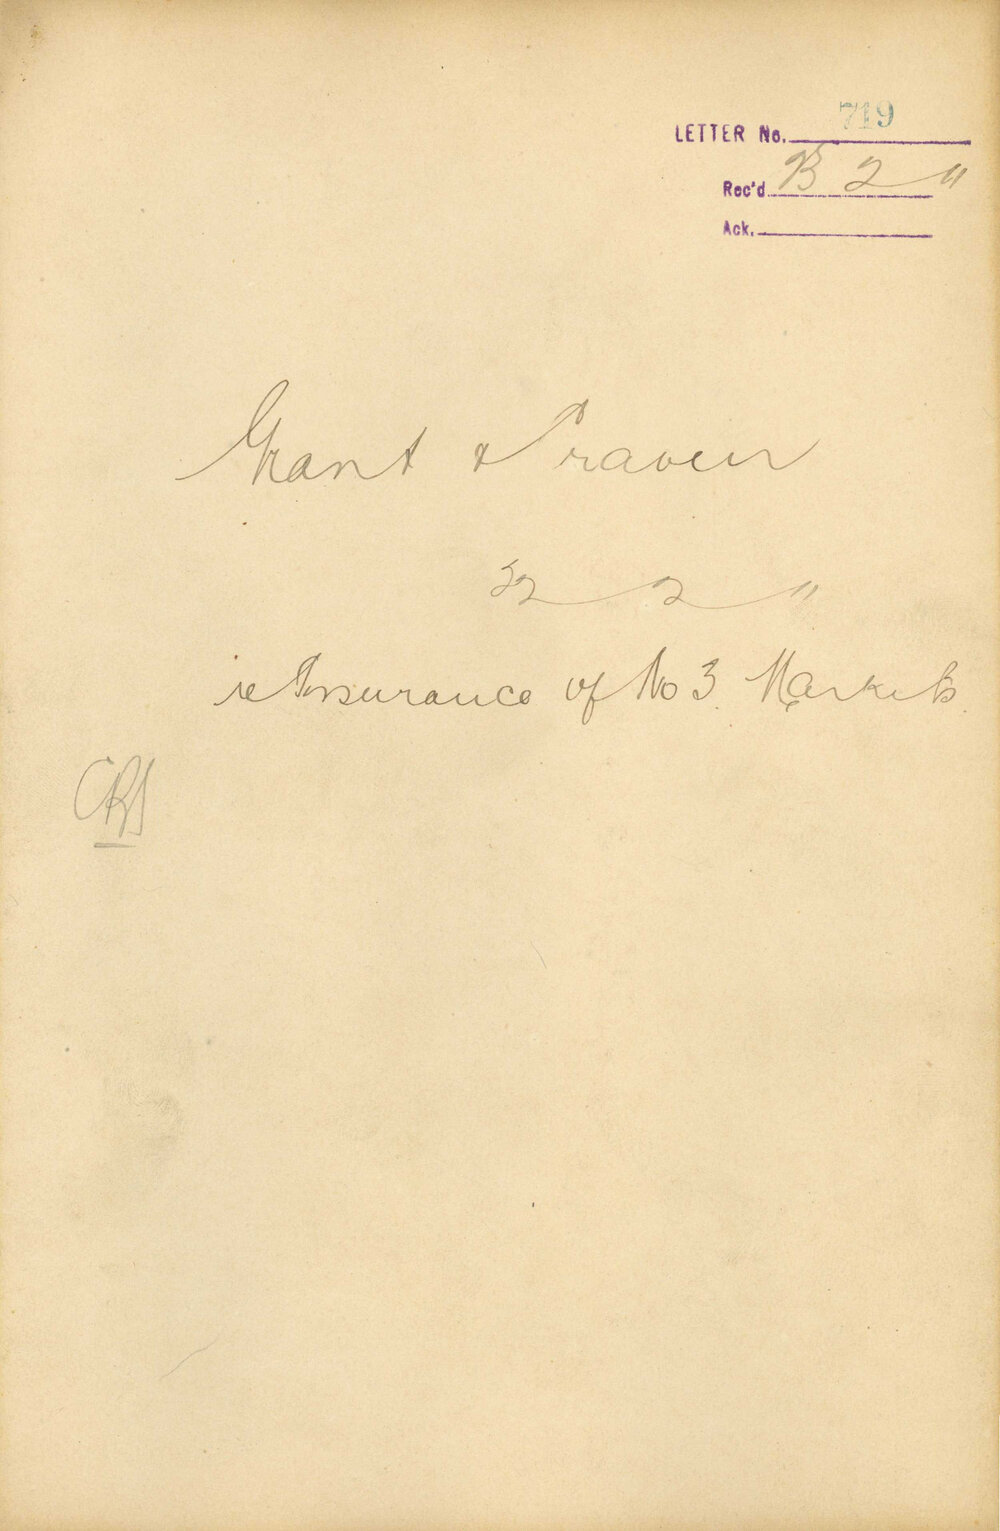 LETTER No. 719
Rec'd 23 2 11
Ack.
Grant &
22 2 11
re Insurance of No 3 Markets